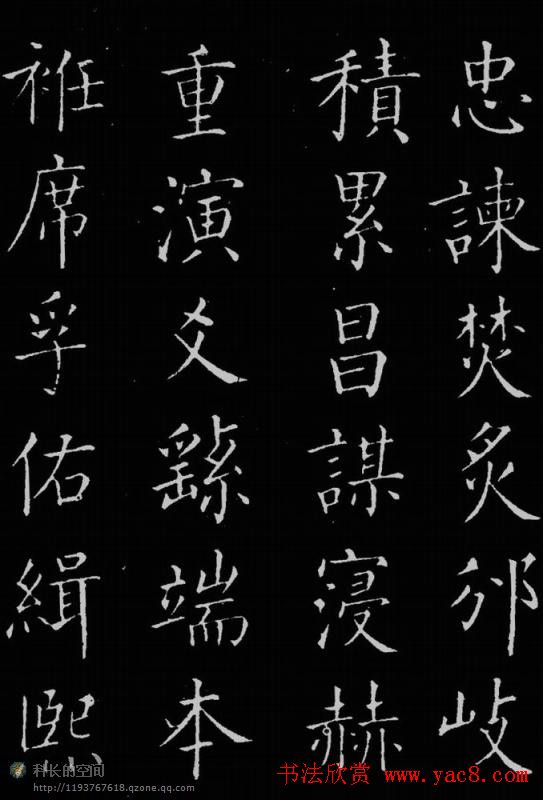 忠諫焚炙邠岐
積累昌謀寖赫
重演爻繇端本
袵席孚佑緝熙
科长的空间
http://1193767618.qzone.qq.com
书法欣赏 www.yac8.com